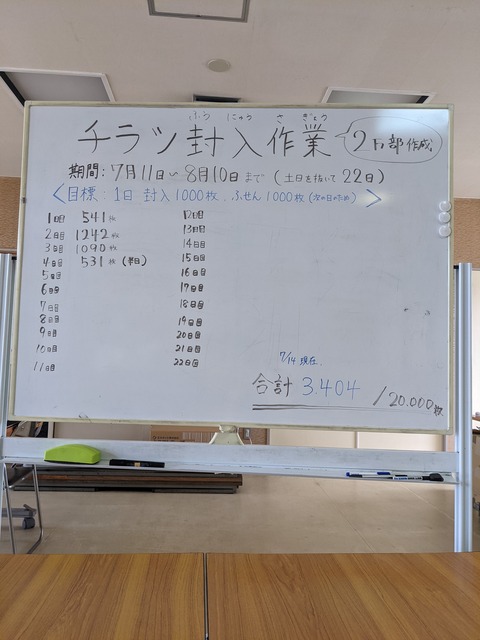 ふう にゅう さ ぎょう
チラシ封入作業 2万部作成
期間:7月11日〜8月10日まで(土日を抜いて22日)
<目標:1日 封入1000枚、ふせん1000枚(次の日のため)>
1日目 541枚
2日目 1242枚
3日目 1090枚
4日目 531枚(半日)
5日目
6日目
7日目
8日目
9日目
10日目
11日目
12日目
13日目
14日目
15日目
16日目
17日目
18日目
19日目
20日目
21日目
22日目
7/14現在
合計 3.404/20.000枚